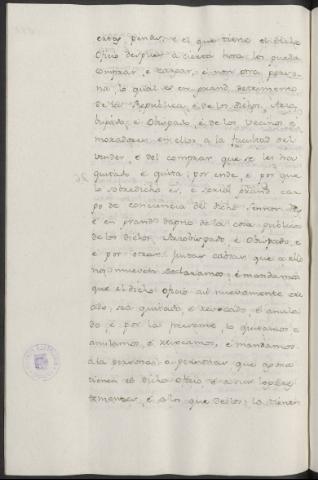 ciertas penas, e el que tiene el dicho
Oficio despues a cierta hora los pueda
comprar, e cazar, e non otra perso-
na, lo qual es en grand detrimento
de la Republica, é de los dichos, Arzo-
bispado, e Obispado, é de los vecinos é
moradores en ellos, a la facultad del
vender, e del comprar que se les ha
quitado e quita; por ende, e por que
lo sobredicho es, e seria grand car-
go de conciencia del dicho Sennor Rey
é en grando dapno de la cosa publica
de los dichos Arzobispado, e Obispado, e
e por otras justas cabsas que a ello
nos mueven declaramos, é mandamos
que el dicho oficio asi nuevamente cre-
ado, sea quitado, e revocado é anula-
do é por la presente lo quitamos e
anulamos, é revocamos, é mandamos
a la persona, o personas que agora
tienen el dicho oficio e a sus logares
tenientes, é a los que dellos lo tienen